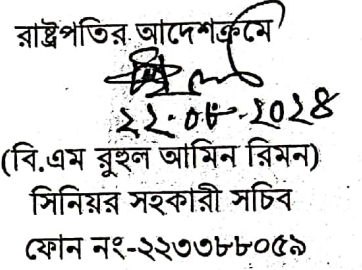 রাষ্ট্রপতির আদেশক্রমে
২২.০৮.২০২৪
(বি.এম রুহুল আমিন রিমন)
সিনিয়র সহকারী সচিব
ফোন নং-২২৩৩৮৮০৫৯